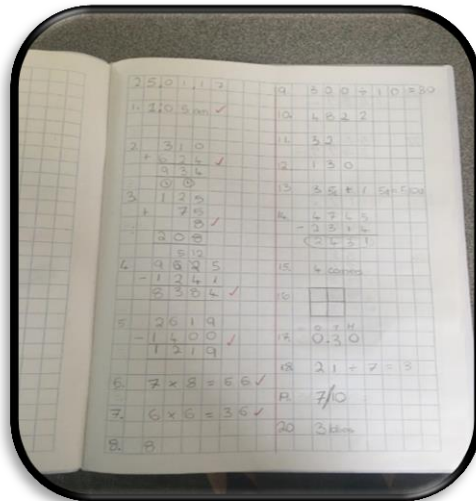 25.01.17
1. 2.05am
2. 310
+ 624
934
3. 125
+ 75
8
208
512
4. 9625
- 1241
8384
5. 2619
- 1400
1219
6. 7 x 8 = 56
7. 6 x 6 = 36
8. 8
9. 320 ÷ 10 = 32
10. 4822
11. 32
12. 130
13. 35
14. 4745
- 2314
2431
15. 4
16.
17. 0.30
18. 21 ÷ 7 = 3
19. 7/10
20. 3